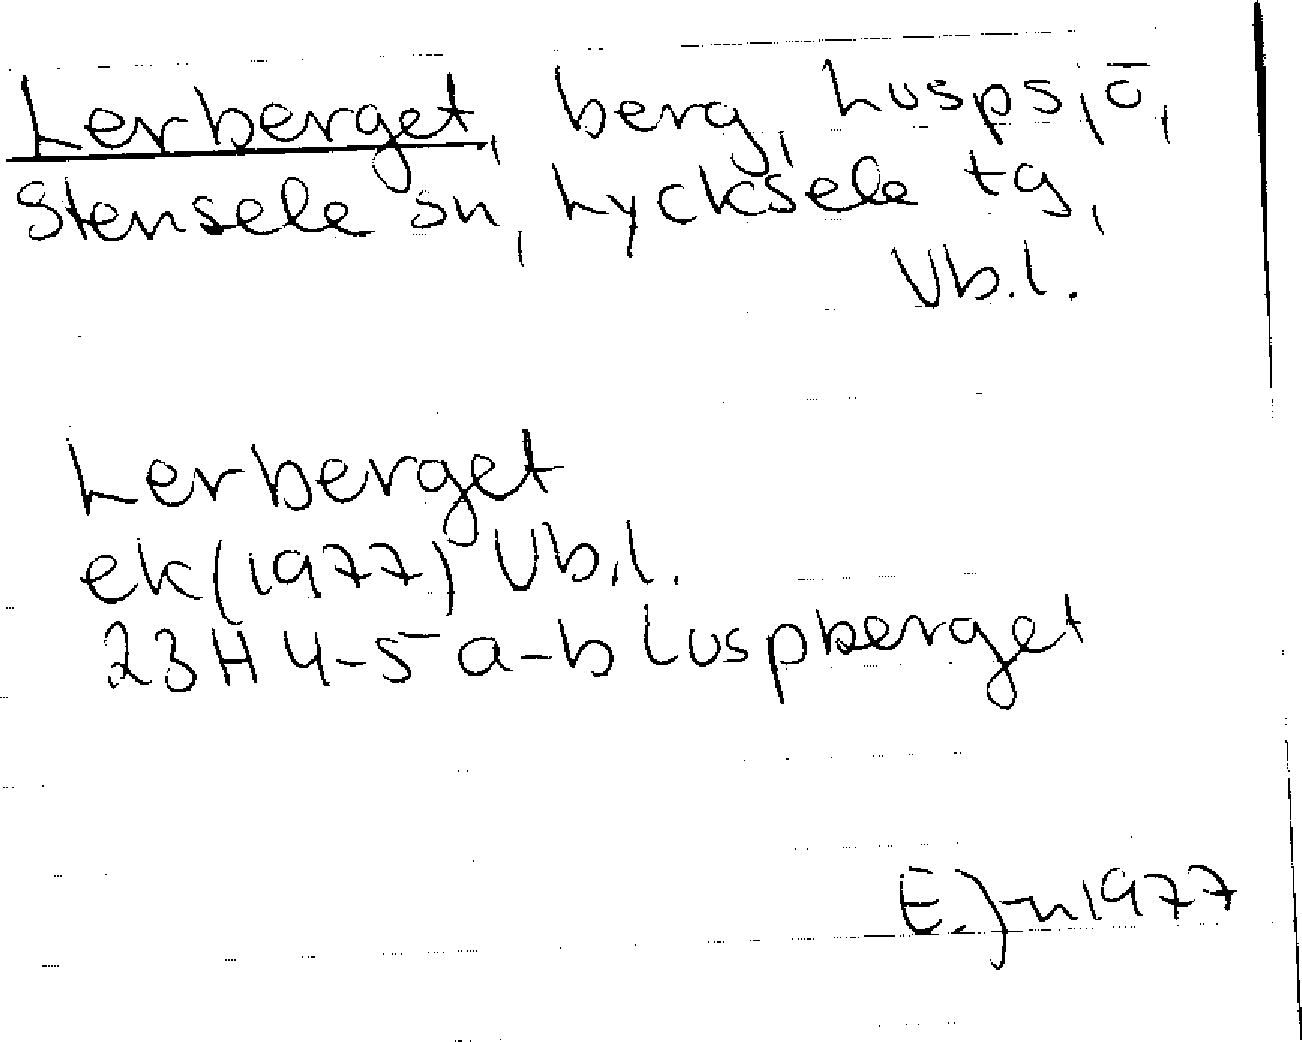 Lerberget, berg, Lusps, ö,
Stensele sn, Lycksele tg,
Vb.l.
Lerberget
ek (1977) Vb.l.
23H 4-5 a-b Luspberget
E.J-n 1977